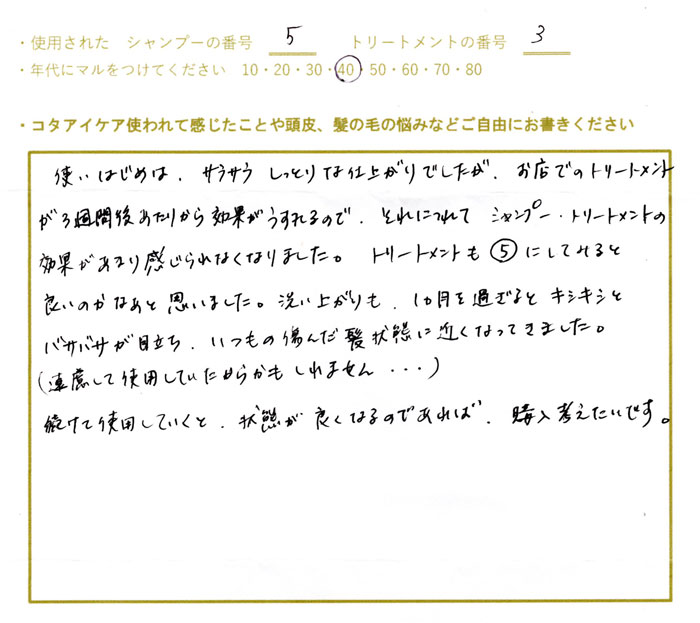 ・使用された　シャンプーの番号　5　トリートメントの番号　3
・年代にマルをつけてください　10・20・30・40・50・60・70・80
・コタアイケア使われて感じたことや頭皮、髪の毛の悩みなどご自由にお書きください
使いはじめは、サラサラ しっとりな仕上がりでしたが、お店でのトリートメント
が3週間後あたりから効果がうすれるので、それにつれて シャンプー・トリートメントの
効果があまり感じられなくなりました。 トリートメントも⑤にしてみると
良いのかなあと思いました。洗い上がりも、1ヵ月を過ぎると キシキシと
バサバサが目立ち、いつもの傷んだ髪状態に近くなってきました。
(遠慮して使用していたからかもしれません・・・)
続けて使用していくと、状態が良くなるのであれば、購入考えたいです。